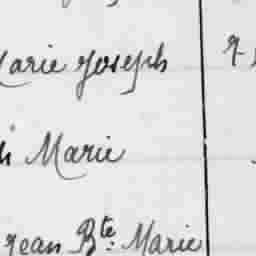 Marie Joseph
Marie
Jean Bte. Marie